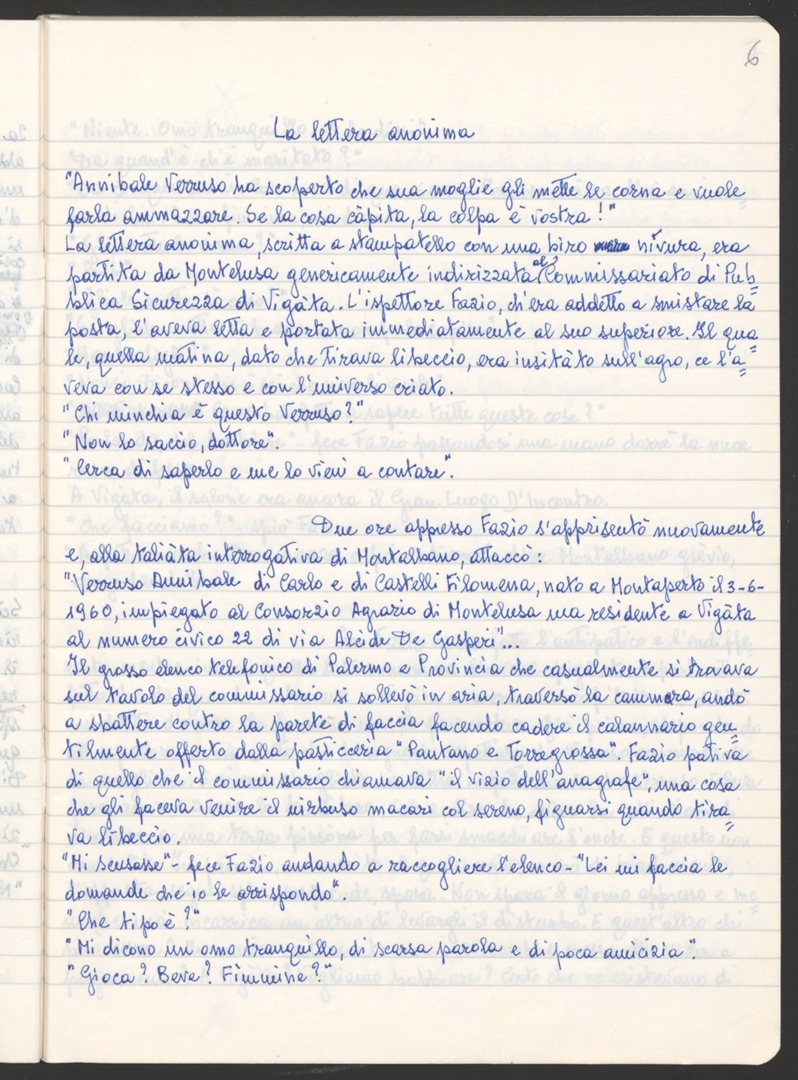 6
La lettera anonima
"Annibale Verruso ha scoperto che sua moglie gli mette le corna e vuole
farla ammazzare. Se la cosa càpita, la colpa è vostra!"
La lettera anonima, scritta a stampatello con una biro nìvura, era
partita da Montelusa genericamente indirizzata al Commissariato di Pub=
blica Sicurezza di Vigàta. L'ispettore Fazio, ch'era addetto a smistare la
posta, l'aveva letta e portata immediatamente al suo superiore. Il qua=
le, quella matina, dato che tirava libeccio, era insitàto sull'agro, ce l'a=
veva con se stesso e con l'universo criato.
"Chi minchia è questo Verruso?"
"Non lo saccio, dottore".
"Cerca di saperlo e me lo vieni a contare".
Due ore appresso Fazio s'apprisentò nuovamente
e, alla taliàta interrogativa di Montalbano, attaccò:
"Verruso Annibale di Carlo e di Castelli Filomena, nato a Montaperto il 3-6-
1960, impiegato al Consorzio Agrario di Montelusa ma residente a Vigàta
al numero civico 22 di via Alcide De Gasperi"...
Il grosso elenco telefonico di Palermo e Provincia che casualmente si trovava
sul tavolo del commissario si sollevò in aria, traversò la cammara, andò
a sbattere contro la parete di faccia facendo cadere il calannario gen=
tilmente offerto dalla pasticceria "Pantano e Torregrossa". Fazio pativa
di quello che il commissario chiamava "il vizio dell'anagrafe", una cosa
che gli faceva venire il nirbuso macari col sereno, figurarsi quando tira=
va libeccio.
"Mi scusasse"- fece Fazio andando a raccogliere l'elenco - "Lei mi faccia le
domande che io le arrispondo".
"Che tipo è?"
"Mi dicono un omo tranquillo, di scarsa parola e di poca amicizia"
"Gioca? Beve? Fimmine?"